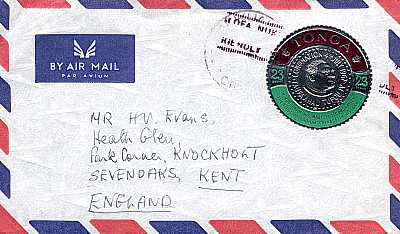 BY AIR MAIL
PAR AVION
TONGA
23
23
MR HV. Evans,
Heath Glen,
Park Corner, KNOCKHOLT
SEVENOAKS, KENT
ENGLAND